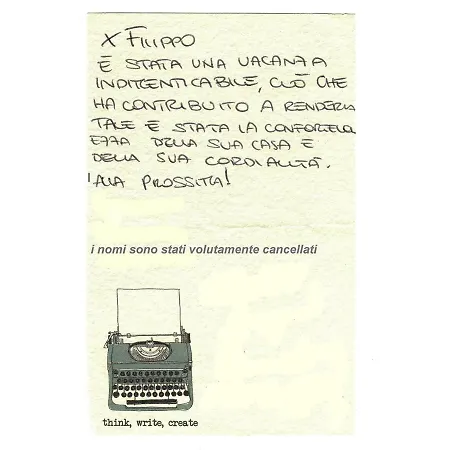 X FILIPPO
È STATA UNA VACANZA
INDIMENTICABILE, CIÒ CHE
HA CONTRIBUITO A RENDERLA
TALE È STATA LA CONFORTEVOL
EZZA DELLA SUA CASA E
DELLA SUA CORDIALITÀ.
ALLA PROSSIMA!
i nomi sono stati volutamente cancellati
think, write, create